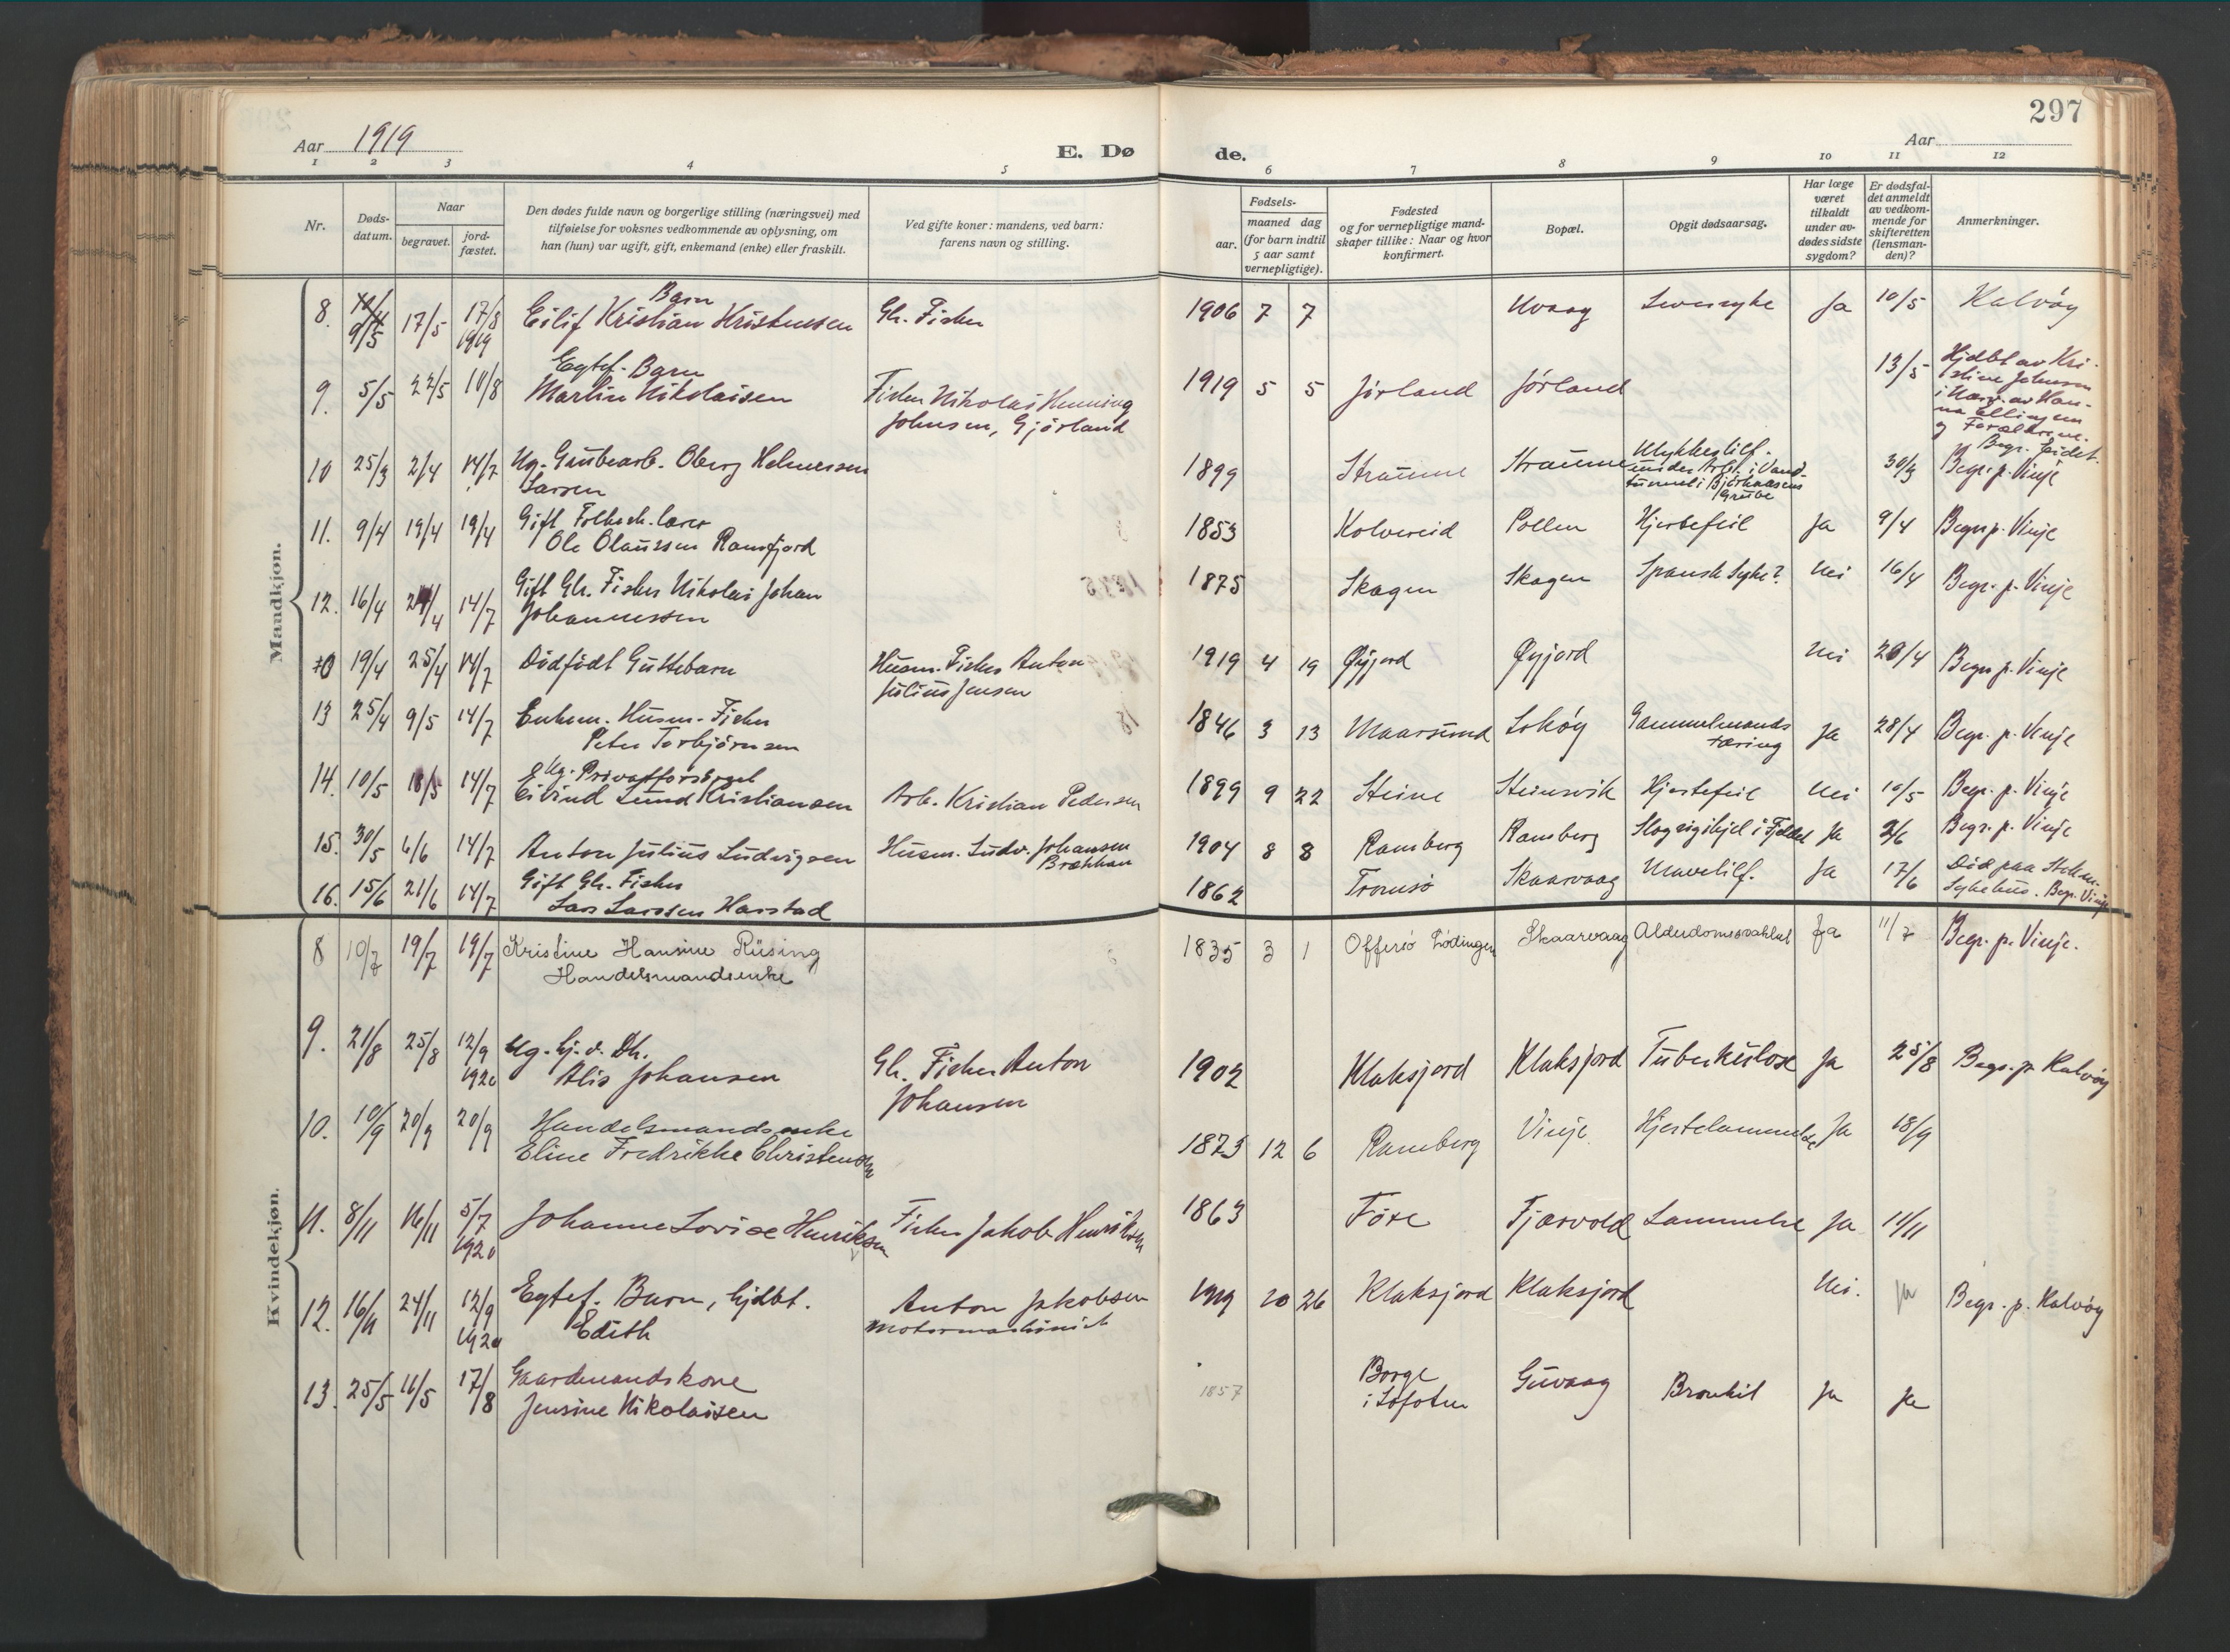 297
Aar 1919
E. Dø
de.
Aar
1 2 3 4 5 6 7 8 9 10 11 12
Nr.
Døds-
datum.
Naar
begravet.
jord-
fæstet.
Den dødes fulde navn og borgerlige stilling (næringsvei) med
tilføielse for voksnes vedkommende av oplysning, om
han (hun) var ugift, gift, enkemand (enke) eller fraskilt.
Ved gifte koner: mandens, ved barn:
farens navn og stilling.
Fødsels-
aar.
maaned dag
(for barn indtil
5 aar samt
vernepligtige).
Fødested
og for vernepligtige mand-
skaper tillike: Naar og hvor
konfirmert.
Bopæl.
Opgit dødsaarsag.
Har læge
været
tilkaldt
under av-
dødes sidste
sygdom?
Er dødsfal-
det anmeldt
av vedkom-
mende for
skifteretten
(lensman-
den)?
Anmerkninger.
Mandkjøn.
8. 9/5 17/5 17/8 1919 Barn
Eilif Kristian Kristensen Gh. Fisker 1906 7 7 Ja 10/5 Kalvøy
9. 5/5 22/5 10/8 Egtef. Barn
Martin Nikolaisen Fisker Nikolai Henning
Johnsen, Gjörland 1919 5 5 Jörland Jörland 13/5 Hjdbt av Kri-
stine Johnsen
og Forældrene.
10 25/3 2/4 14/7 Ug. Grubearb. Oberg Helmersen
Larsen 1899 Straume Straume Ulykkestilf.
under Arb. i Vand-
tunnel i Bjørkaasens
Grube 30/3 Begr. p. Vinje
11. 9/4 19/4 19/4 Gift Folkesk. lærer
Ole Olaussen Ramfjord 1853 Kolvereid Pollen Hjertefeil Ja 9/4 Begr. p. Vinje
12. 16/4 24/4 14/7 Gift Gh. Fisker Nikolai Johan
Johannessen 1875 Skagen Skagen Spansk Syke? Nei 16/4 Begr. p. Vinje
19/4 25/4 14/7 Dødfödt Guttebarn Husm. Fisker Anton
Julius Jensen 1919 4 19 Øyjord Øyjord Nei Begr. p. Vinje
13 25/4 9/5 14/7 Enkem. Husm. Fisker
Peter Torbjörnsen 1846 3 13 Maarsund Lokøy Gammelmands
tæring Ja 28/4 Begr. p. Vinje
14. 10/5 18/5 14/7 Ug. Privatforsörget
Eivind Lund Kristiansen Arb. Kristian Pedersen 1899 9 22 Steine Steinsvik Hjertefeil Nei 10/5 Begr. p. Vinje
15. 30/5 6/6 14/7 Anton Julius Ludvigsen Husm. Ludv. Johansen
Brækkan 1904 8 8 Ramberg Ramberg Slog sig ihjel i Fjeldet Ja 2/6 Begr. p. Vinje
16. 15/6 21/6 14/7 Gift Gh. Fisker
Lars Larssen Harstad 1862 Tromsö Skaarvaag Mavelilf. Ja 17/6 Död paa Stokm.
Sykehus. Begr. Vinje
Kvindekjøn.
8 10/7 19/7 19/7 Kristine Hansine Rüsing
Handelsmandsenke 1835 3 1 Offersö Lödingen Skaarvaag Alderdomssvakhet Ja 11/7 Begr. p. Vinje.
9. 21/8 25/8 12/9 1920 Ug. Hj. v. Dtr.
Alis Johansen Gh. Fisker Anton
Johansen 1902 Klaksjord Klaksjord Tuberkulose Ja 25/8 Begr. p. Kalvøy
10. 10/9 20/9 20/9 Handelsmandsenke
Eline Fredrikke Christensen 1873 12 6 Ramberg Vinje Hjertelammelse Ja 18/9
11. 8/11 16/11 5/7 1920 Johanne Lovise Henriksen Fisker Jakob Henriksen 1863 Före Fjærvold Lammelse Ja 11/11
12. 16/11 24/11 12/9 1920 Egtef. Barn, hjdbt.
Edith Anton Jakobsen
Motormaskinist 1919 10 26 Klaksjord Klaksjord Nei. Ja Begr. p. Kalvøy
13. 25/5 11/5 17/8 Gaardmandskone
Jensine Nikolaisen 1857 Borge
i Lofoten Guvaag Bronkit Ja Ja